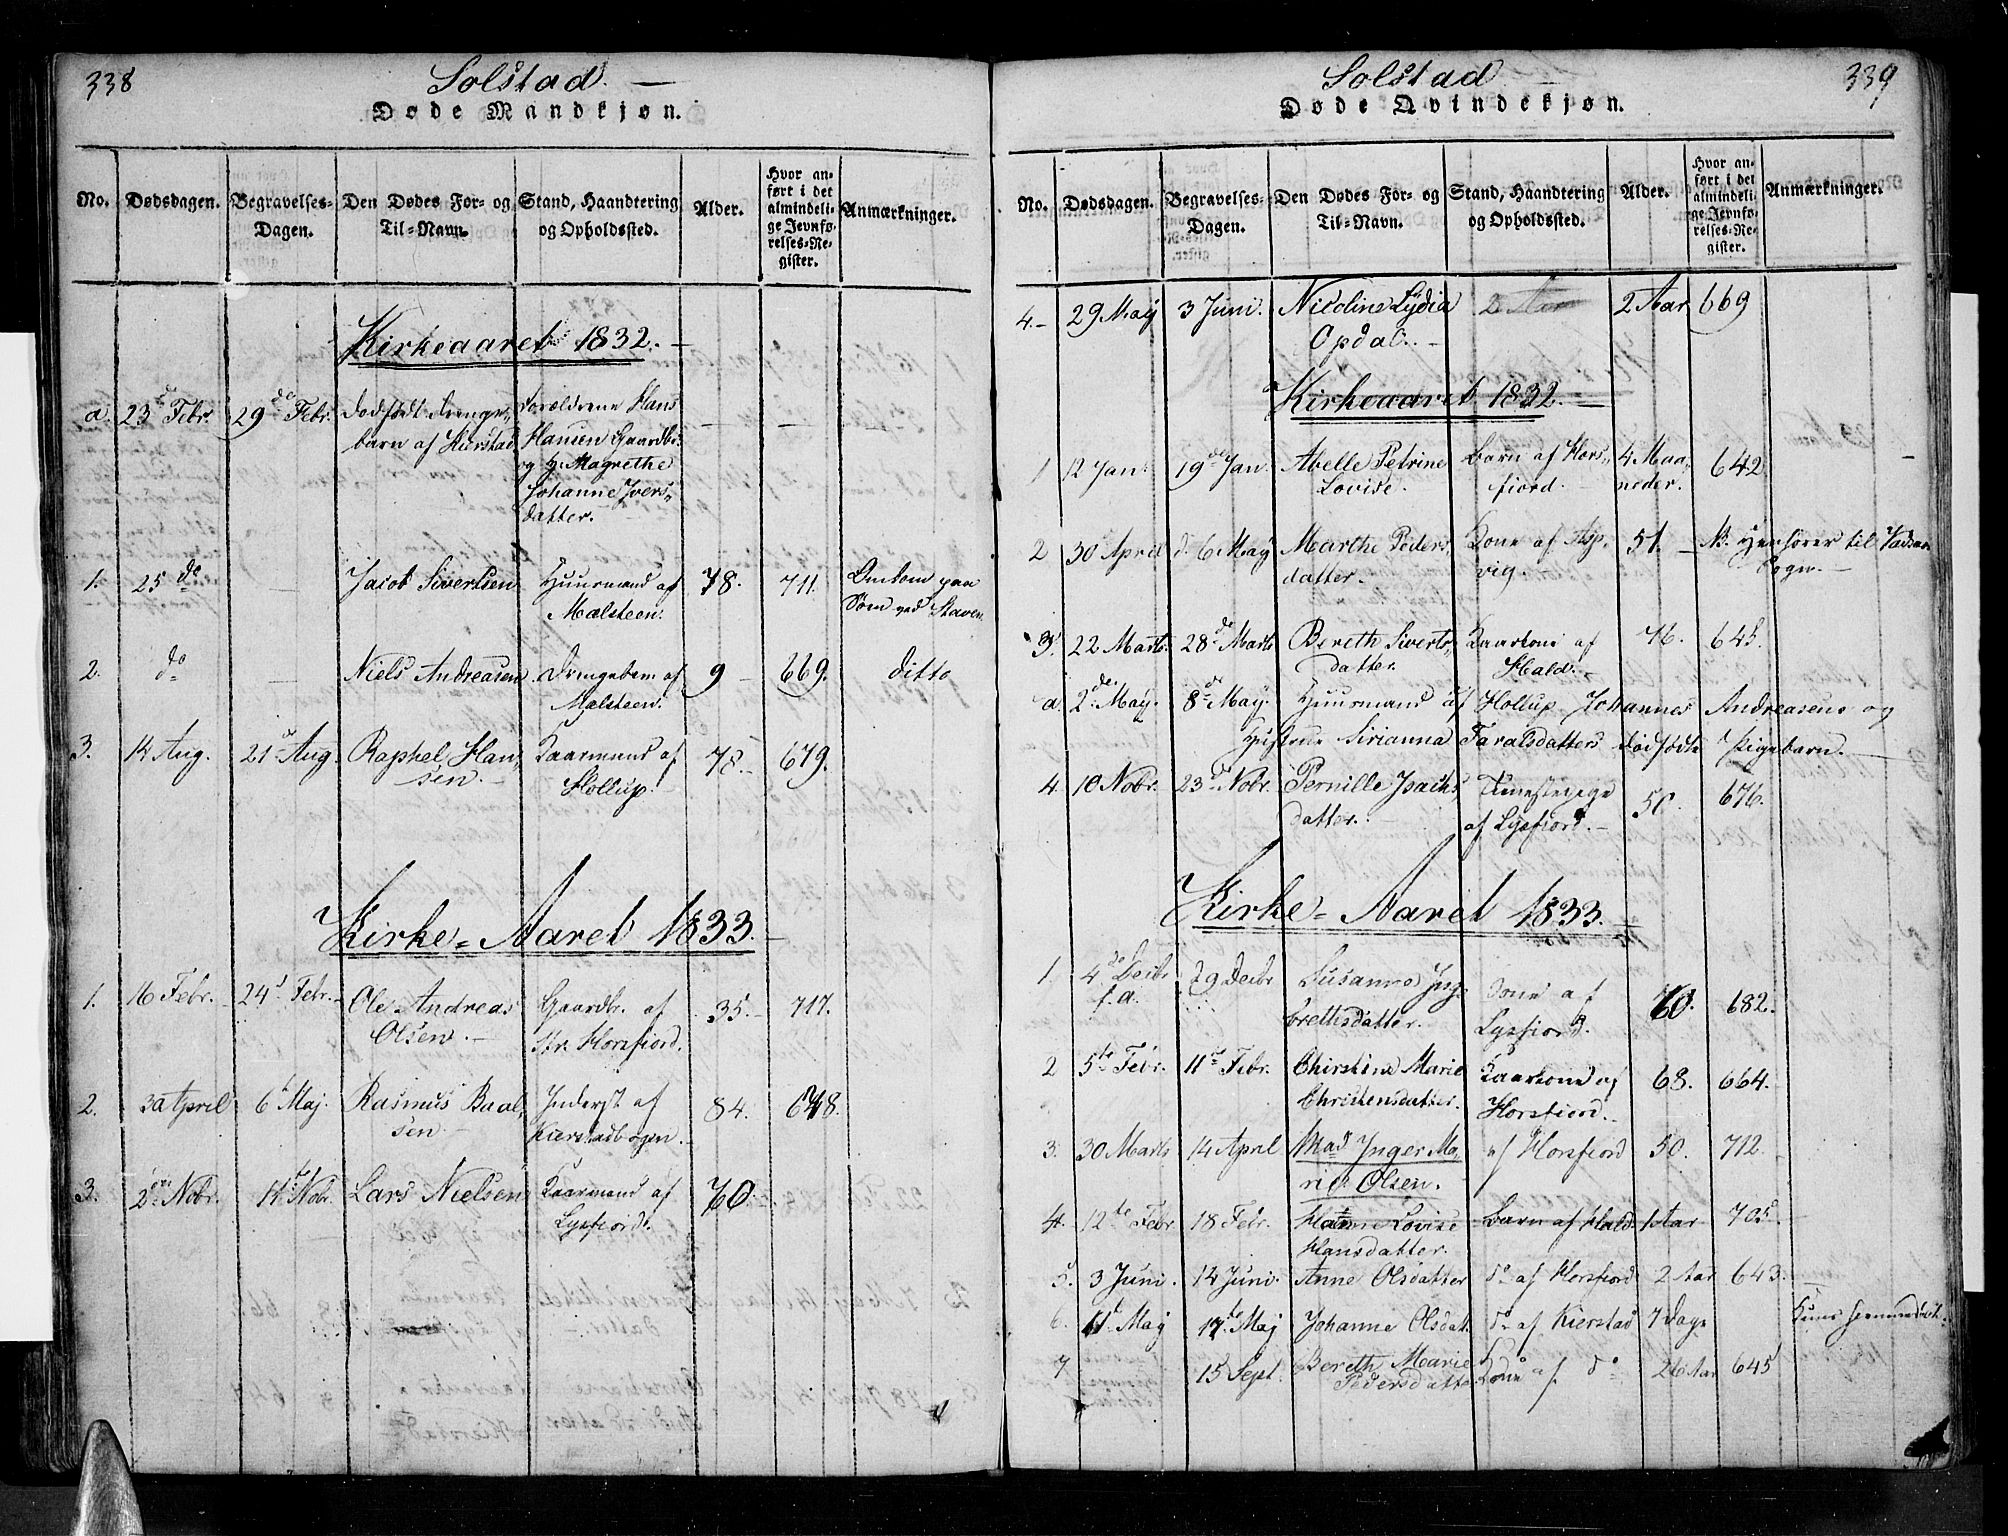 338
Solstad.
Døde Mandkjøn.
No. Dødsdagen. Begravelses-Dagen. Den Dødes For- og Til-Navn. Stand, Haandtering og Opholdssted. Alder. Hvor anført i det almindelige Jevnførelses-Register. Anmærkninger.
Kirkeaaret 1832.
a. 23de Febr. 29de Febr. dødfødt Drenge-
barn af Kierstad
Forældrene Hans
Hansen Gaardbr.
og H. Magrethe
Johanne Ivers-
datter.
1. 25de Jacob Sivertsen Huusmand af 78. 711. Omkom paa
Malsteen. Søen ved Staven
2. do Niels Andreasen Drengebarn af 9 669. ditto
Malsteen.
3. 14 Aug. 21d Aug. Raphel Han- Kaarmand af 78. 679.
sen. Hollup.
Kirke-Aaret 1833.
1. 16 Febr. 24d Febr. Ole Andreas Gaardbr. af 35. 717.
Olsen. Str. Horsfiord.
2. 30 April 6t Maj. Rasmus Baal- Inderst af 84. 648.
sen Kierstadbogen.
3. 2den Nobr. Nobr. Lars Nielsen Kaarmand af 70.
Lysfiord.
339
Solstad
Døde Qvindekjøn.
No. Dødsdagen. Begravelses-Dagen. Den Dødes For- og Til-Navn. Stand, Haandtering og Opholdssted. Alder. Hvor anført i det almindelige Jevnførelses-Register. Anmærkninger.
4. 29 Maij 3 Juni. Nicoline Lydia 2 Aar 2 Aar 669
Opdal.
Kirkeaaret 1832.
1 12 Jan. 19de Jan. Abelle Petrine Barn af Hors- 4 Maa- 642
Lovise. fiord. neder.
2 30 April d. 6 Maÿ Marthe Peders- Kone af Asp- 51. NB. Henhører til Vadsøe
datter. vig. Sogn.
3. 22 Marts. 28de Marts Bereth Siverts- Kaarkone af 76. 645.
datter Hald.
a. 2de Maÿ. 8de Maÿ. Huusmand af Hollup Johannes Andreasens og
Hustrue Sirianna Taralsdatters dødfødte Pigebarn.
4 10 Nobr. 23d Nobr. Pernille Isachs- Tienestepige 50. 676.
datter. af Lysfiord.
Kirke-Aaret 1833.
1. 4de Decbr 29 Decbr Susanna Ing- Kone af 60. 682.
f. a. brethsdatter. Lysfiord.
2 5te Febr. 11te Febr. Chirstine Marie Kaarkone af 68. 664.
Christensdatter. Horsfiord.
3. 30 Marts 14 April Mad Inger Ma- af Horsfiord 50. 712.
rie Olsen.
4. 12te Febr. 18 Febr. Hanne Lovise Barn af Hald 1 Aar 705.
Hansdatter.
5. 3 Juni. 14 Juni. Anne Olsdatter do af Horsfiord 2 Aar 643.
6. 11t Maÿ 17de Maj Johanne Olsdat. do af Kierstad 7 Dage Kuns hiemmedøbt.
7 15 Sept. Bereth Marie Kone af do 26 Aar 645
Pedersdatter